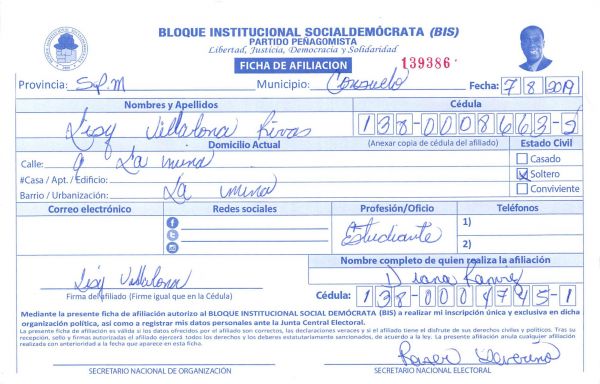 BLOQUE INSTITUCIONAL SOCIALDEMÓCRATA (BIS)
PARTIDO PEÑAGOMISTA
Libertad, Justicia, Democracia y Solidaridad
FICHA DE AFILIACION 139386
Provincia: S.P.M Municipio: Consuelo Fecha: 7/8/2019
Nombres y Apellidos Cédula
Lisy Villalona Rivas 138-0008663-5
Domicilio Actual (Anexar copia de cédula del afiliado) Estado Civil
Calle: 9 La mina Casado
#Casa / Apt. / Edificio: Soltero
Barrio / Urbanización: La mina Conviviente
Correo electrónico Redes sociales Profesión/Oficio Teléfonos
Estudiante 1)
2)
Nombre completo de quien realiza la afiliación
Lisy Villalona Diana Ramirez
Firma del afiliado (Firme igual que en la Cédula) Cédula: 138-0004745-1
Mediante la presente ficha de afiliación autorizo al BLOQUE INSTITUCIONAL SOCIAL DEMÓCRATA (BIS) a realizar mi inscripción única y exclusiva en dicha
organización política, así como a registrar mis datos personales ante la Junta Central Electoral.
La presente ficha de afiliación es válida si los datos ofrecidos por el afiliado son correctos, las declaraciones veraces y si el afiliado tiene el disfrute de sus derechos civiles y políticos. Tras su
recepción, sello y firmas autorizadas el afiliado ejercerá todos los derechos y los deberes estatutariamente sancionados, de acuerdo a la ley. La presente afiliación anula cualquier afiliación
realizada con anterioridad a la fecha que aparece en esta ficha.
SECRETARIO NACIONAL DE ORGANIZACIÓN SECRETARIO NACIONAL ELECTORAL